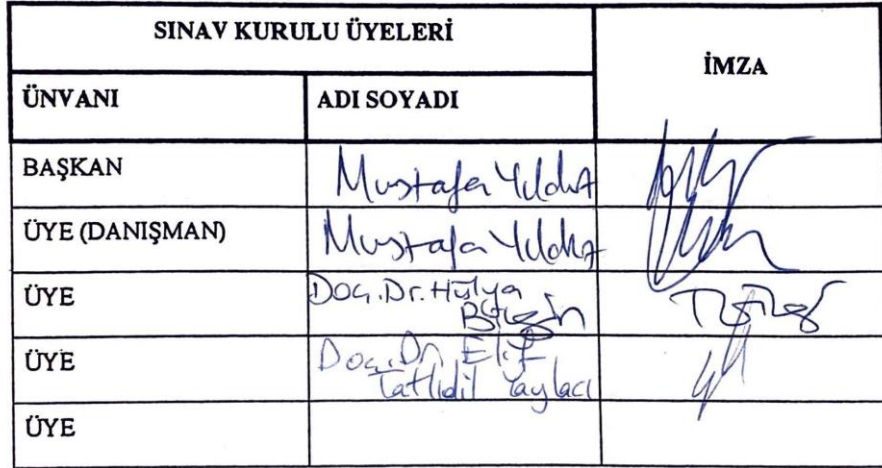 SINAV KURULU ÜYELERİ
İMZA
ÜNVANI
ADI SOYADI
BAŞKAN
Mustafa Yıldız
ÜYE (DANIŞMAN)
Mustafa Yıldız
ÜYE
Doç.Dr. Hülya
ÜYE
Doç.Dr. Elif
Tatlıdil Yaylacı
ÜYE